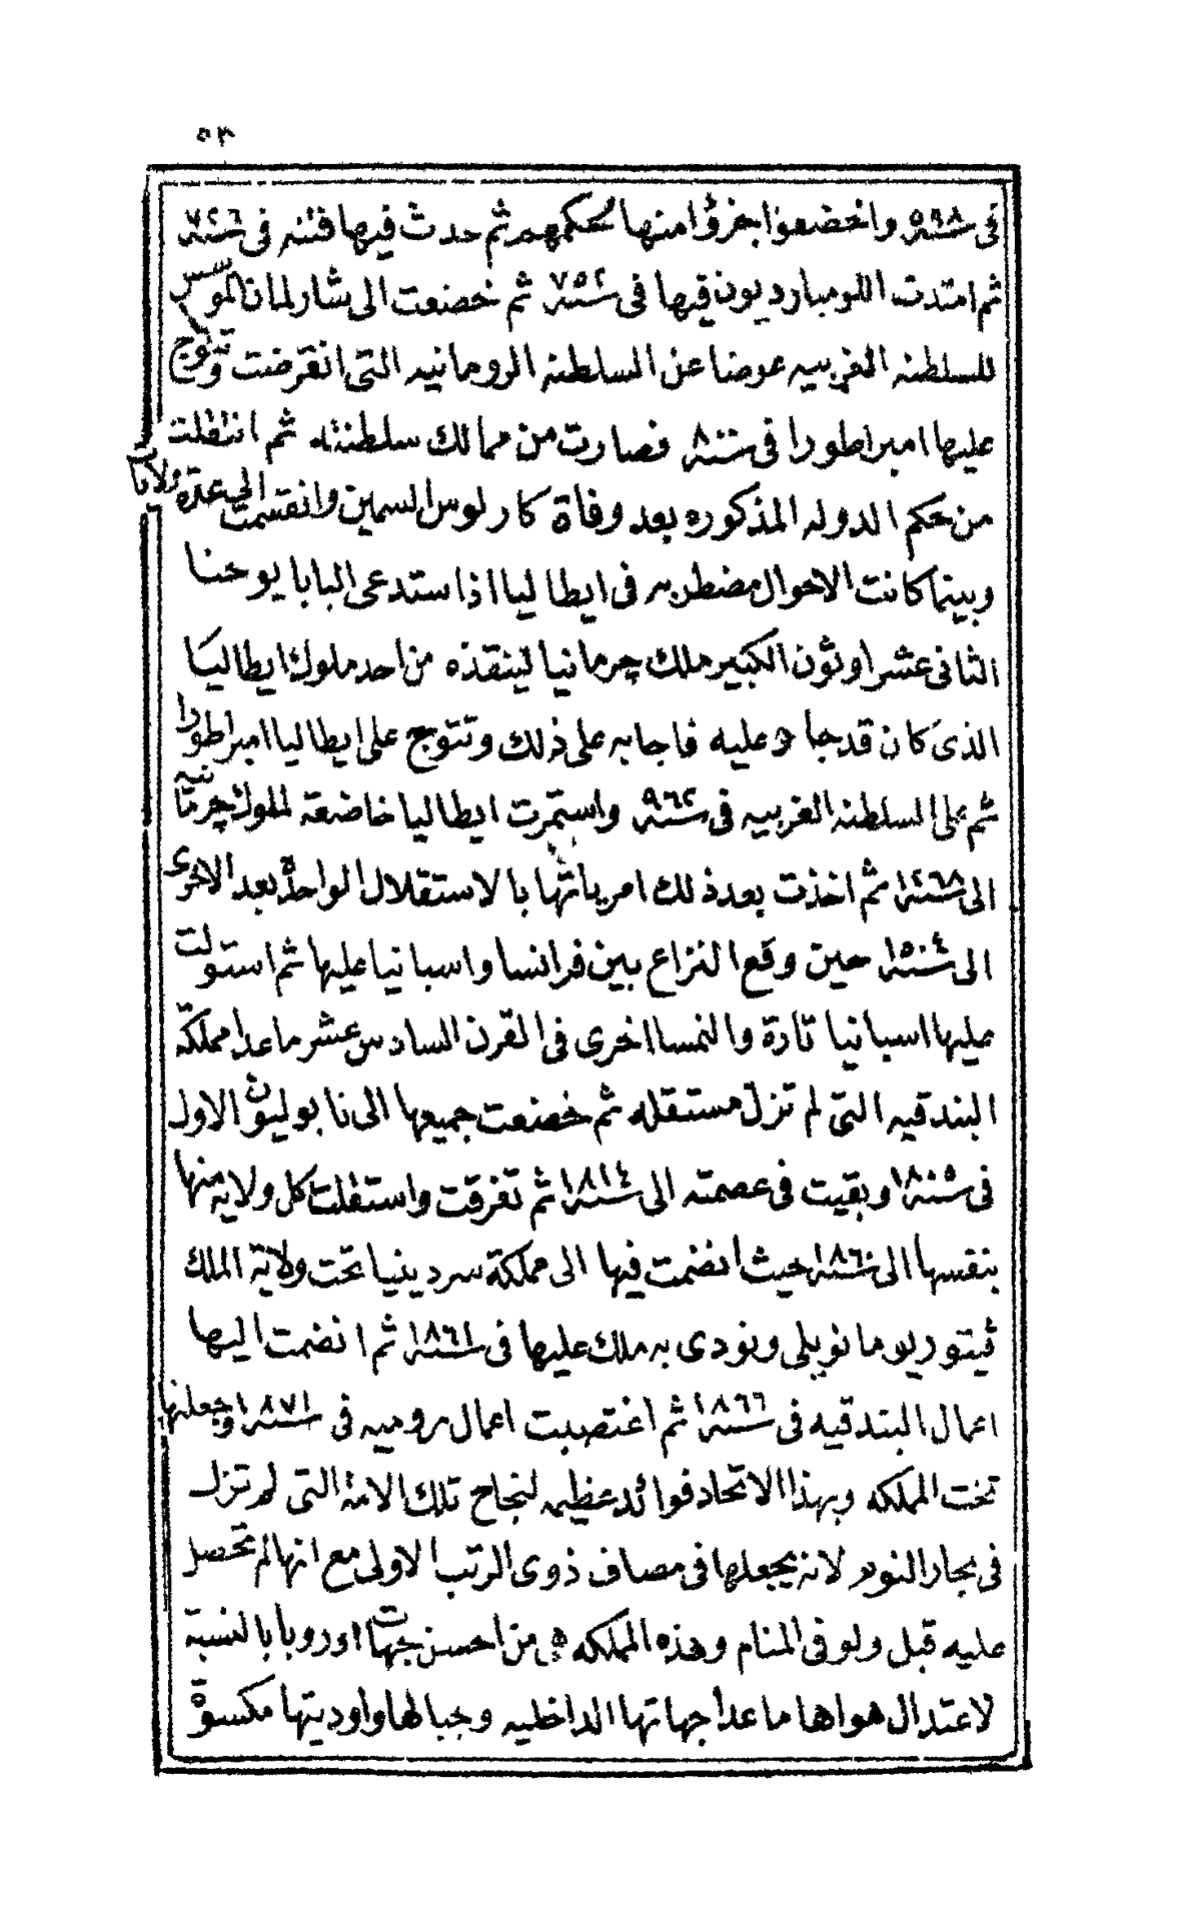 ٥٣
فى سنة ٥٩٨ واخضعوا جزؤا منها لحكمهم ثم حدث فيها فتنه فى سنة ٧٢٦
ثم امتدت اللومبارديون فيها فى سنة ٧٥٢ ثم خضعت الى شارلمان المؤسس
للسلطنه الغربيه عوضا عن السلطنه الرومانيه التى انقرضت وتتوج
عليها امبراطورا فى سنة ٨٠٠ فصارت من ممالك سلطنته ثم انتقلت
من حكم الدوله المذكوره بعد وفاة كارلوس السمين وانقسمت الى عدة ولايات
وبينما كانت الاحوال مضطربه فى ايطاليا اذا ستدعى البابا يوحنا
الثانى عشر اوثون الكبير ملك چرمانيا لينقذه من احد ملوك ايطاليا
الذى كان قد جاء عليه فاجابه على ذلك وتتوج على ايطاليا امبراطورا
ثم على السلطنه الغربيه فى سنة ٩٦٢ واستمرت ايطاليا خاضعة لملوك چرمانيه
الى سنة ١٢٦٨ ثم اخذت بعد ذلك امرياتها بالاستقلال الواحدة بعد الاخرى
الى سنة ١٥٠٤ حين وقع النزاع بين فرانسا واسبانيا عليها ثم استولت
عليها اسبانيا تارة والنمسا اخرى فى القرن السادس عشر ما عدا مملكة
البندقيه التى لم تزل مستقله ثم خضعت جميعها الى نابوليون الاول
فى سنة ١٨٠٥ وبقيت فى عصمته الى سنة ١٨١٤ ثم تفرقت واستقلت كل ولاية منها
بنفسها الى سنة ١٨٦٠ حيث انضمت فيها الى مملكة سردينيا تحت ولاية الملك
ڤيتوريو مانويلى ونودى به ملك عليها فى سنة ١٨٦١ ثم انضمت اليها
اعمال البندقيه فى سنة ١٨٦٦ ثم اغتصبت اعمال روميه فى سنة ١٨٧١ وجعلنها
تخت المملكه وبهذا الاتحاد فوائد عظيمه لنجاح تلك الامة التى لم تزل
فى بحار النوم لانه يجعلها فى مصاف ذوى الرتب الاولى مع انها لم تحصل
عليه قبل ولو فى المنام وهذه المملكه هى من احسن جهات اوروبا بالنسبة
لاعتدال هواها ما عدا جهاتها الداخليه وجبالها واوديتها مكسوة